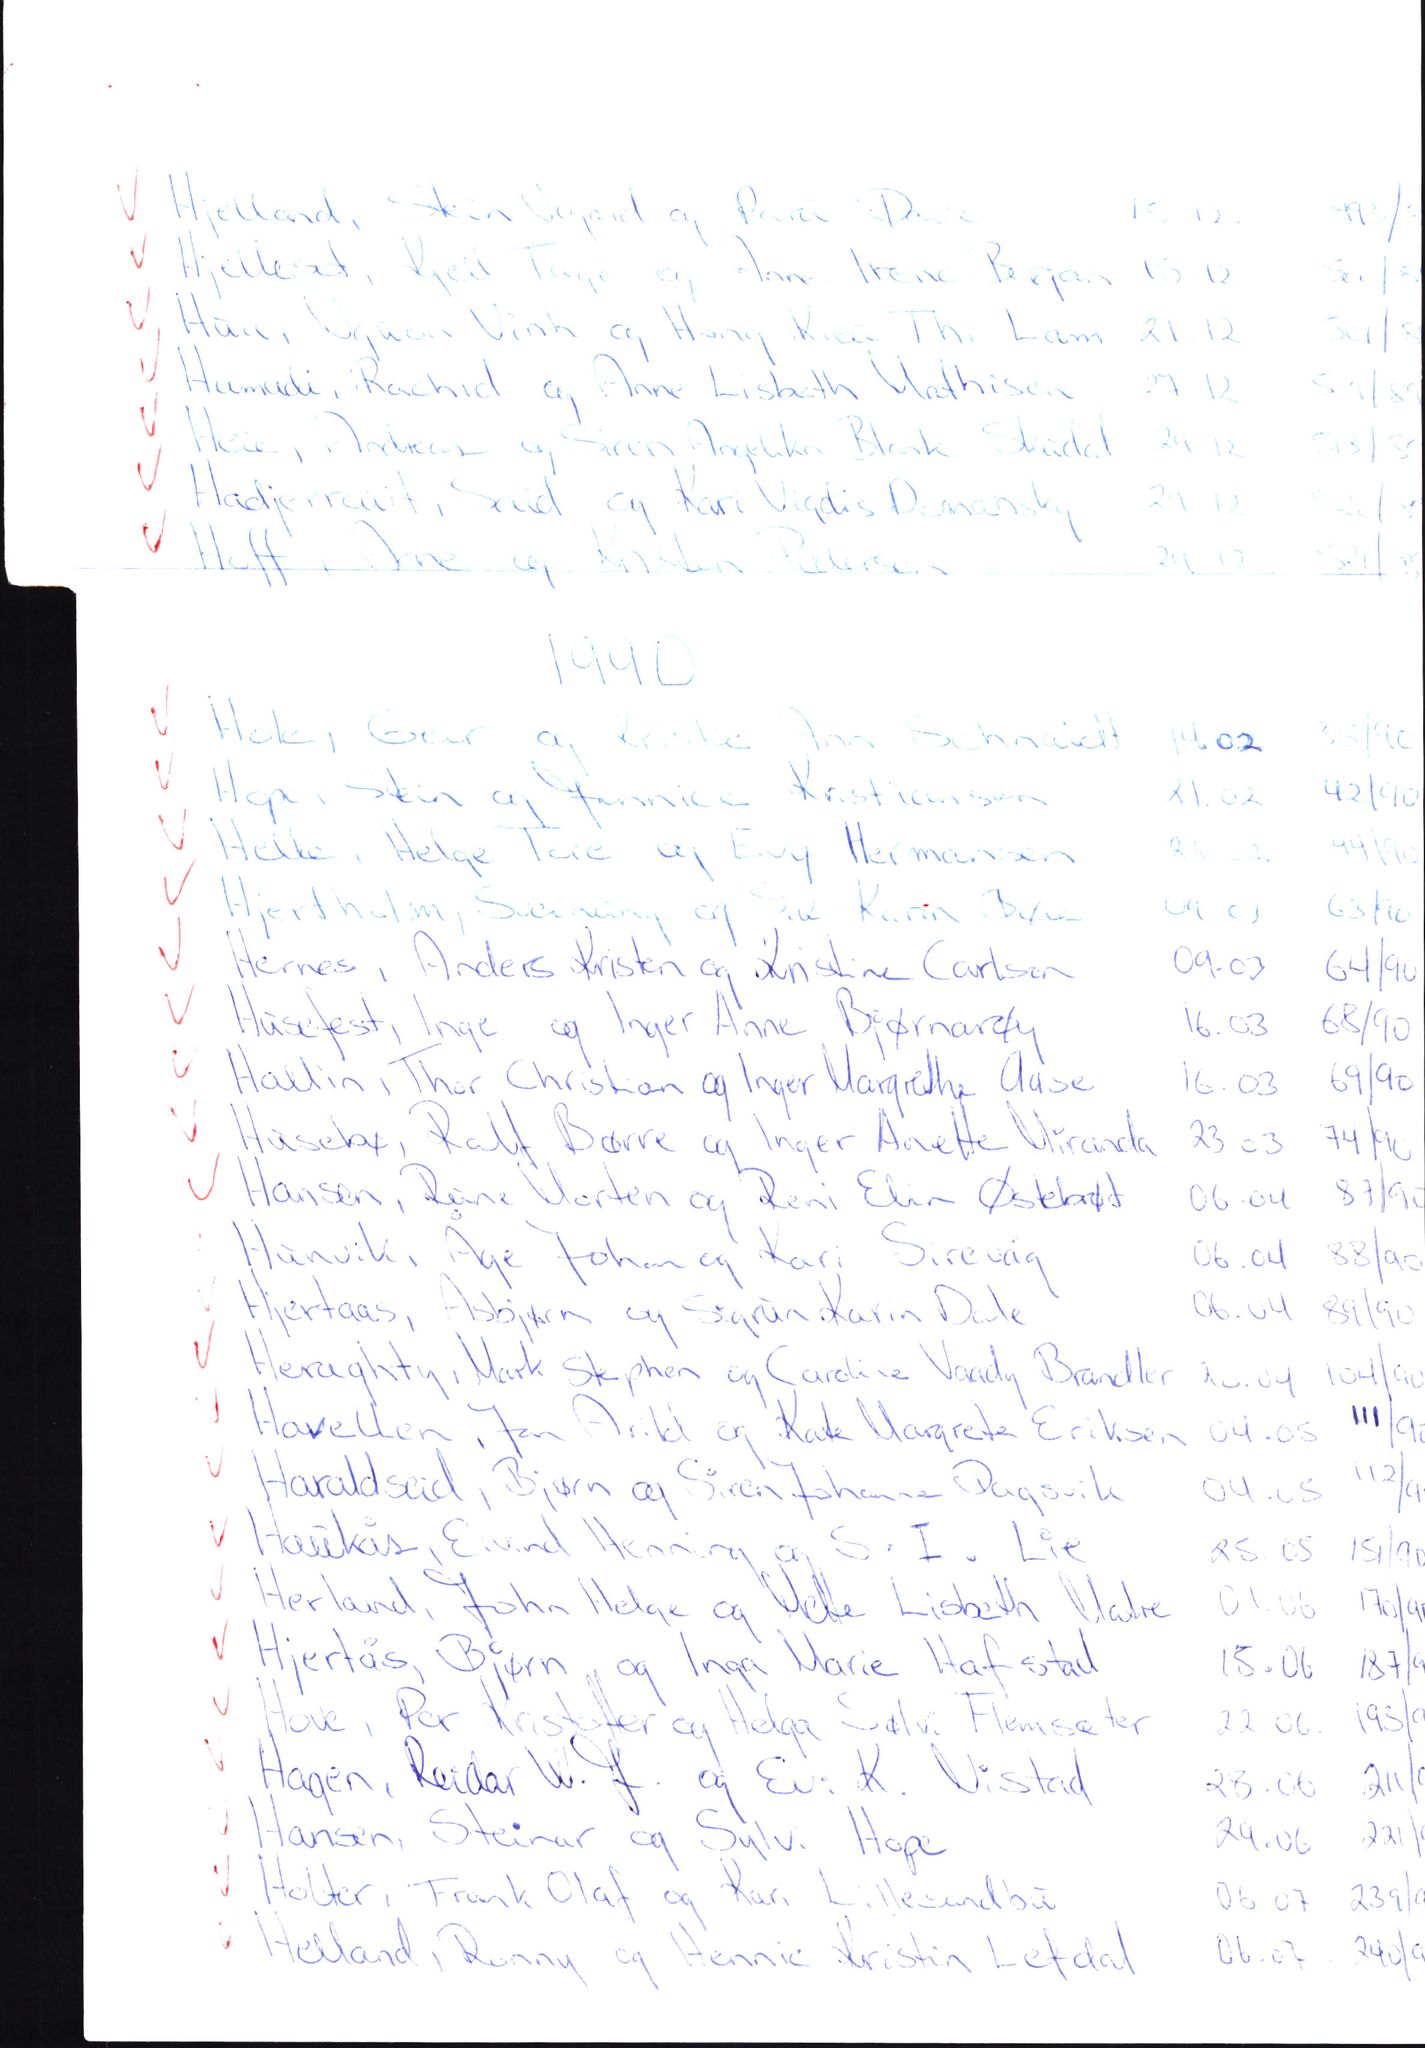 Hjelland, Stein Vegard og 15.12. 493/
Hjelleset, Kjell Inge og Ann Irene Bergan 15.12
Hùu, Nguon Vinh og Hong Kieù Thi Lam 21.12
Humadi, Rachid og Anne Lisbeth Mathisen 27 12
Høie, Andreas og Siren Angelika Blank Skùdal 29 12
Hadjerrouit, Said og Kari Vigdis Domansky 29 12
Hoff, Arne og Kirsten Pedersen 29 12
1990
Hole, Geir og Kristi Ann Schneidt 14.02
Hope, Stein og Jannicke Kristiansen 21.02 42/90
Helle, Helge Tore og Evy Hermansen 23 02 44/90
Hjertholm, og Siv Karin 09 03 63/90
Hernes, Anders Kristen og Kristine Carlson 09.03 64/90
Hùsefest, Inge og Inger Anne Bjørnarøy 16.03 68/90
Hallin, Thor Christian og Inger Margrethe Aase 16.03 69/90
Hùsebø, Ralf Børre og Inger Anette Miranda 23 03 74/90
Hansen, Rùne Morten og Reni Elin Østebrøt 06.04 87/90
Hùnvik, Åge Johan og Kari Sirevåg 06.04 88/90
Hjertaas, Asbjørn og Sigrùn Karin Dale 06.04 89/90
Heraghty, Mark Stephen og Caroline Vaady Brandler 20.04 104/90
Havellen, Jan Arild og Kate Margrete Eriksen 04.05 111/90
Haraldseid, Bjørn og Siren Johanne Dagsvik 04.05 112/9
Haùkås, Eivind Henning og S. I. Lie 25.05 151/90
Herland, John Helge og Mette Lisbeth Matre 01.06 170/90
Hjertås, Bjørn og Inga Marie Hafstad 15.06 187/9
Hove, Per Kristoffer og Helga Sølvi Flemsæter 22.06. 193/9
Hagen, Reidar W. J. og Evi K. Vistad 23.06 211/9
Hansen, Steinar og Sylvi Hope 29.06 221/9
Holter, Frank Olaf og Kari Lillesandbù 06 07 239/9
Helland, Ronny og Hennie Kristin Lefdal 06.07 240/9